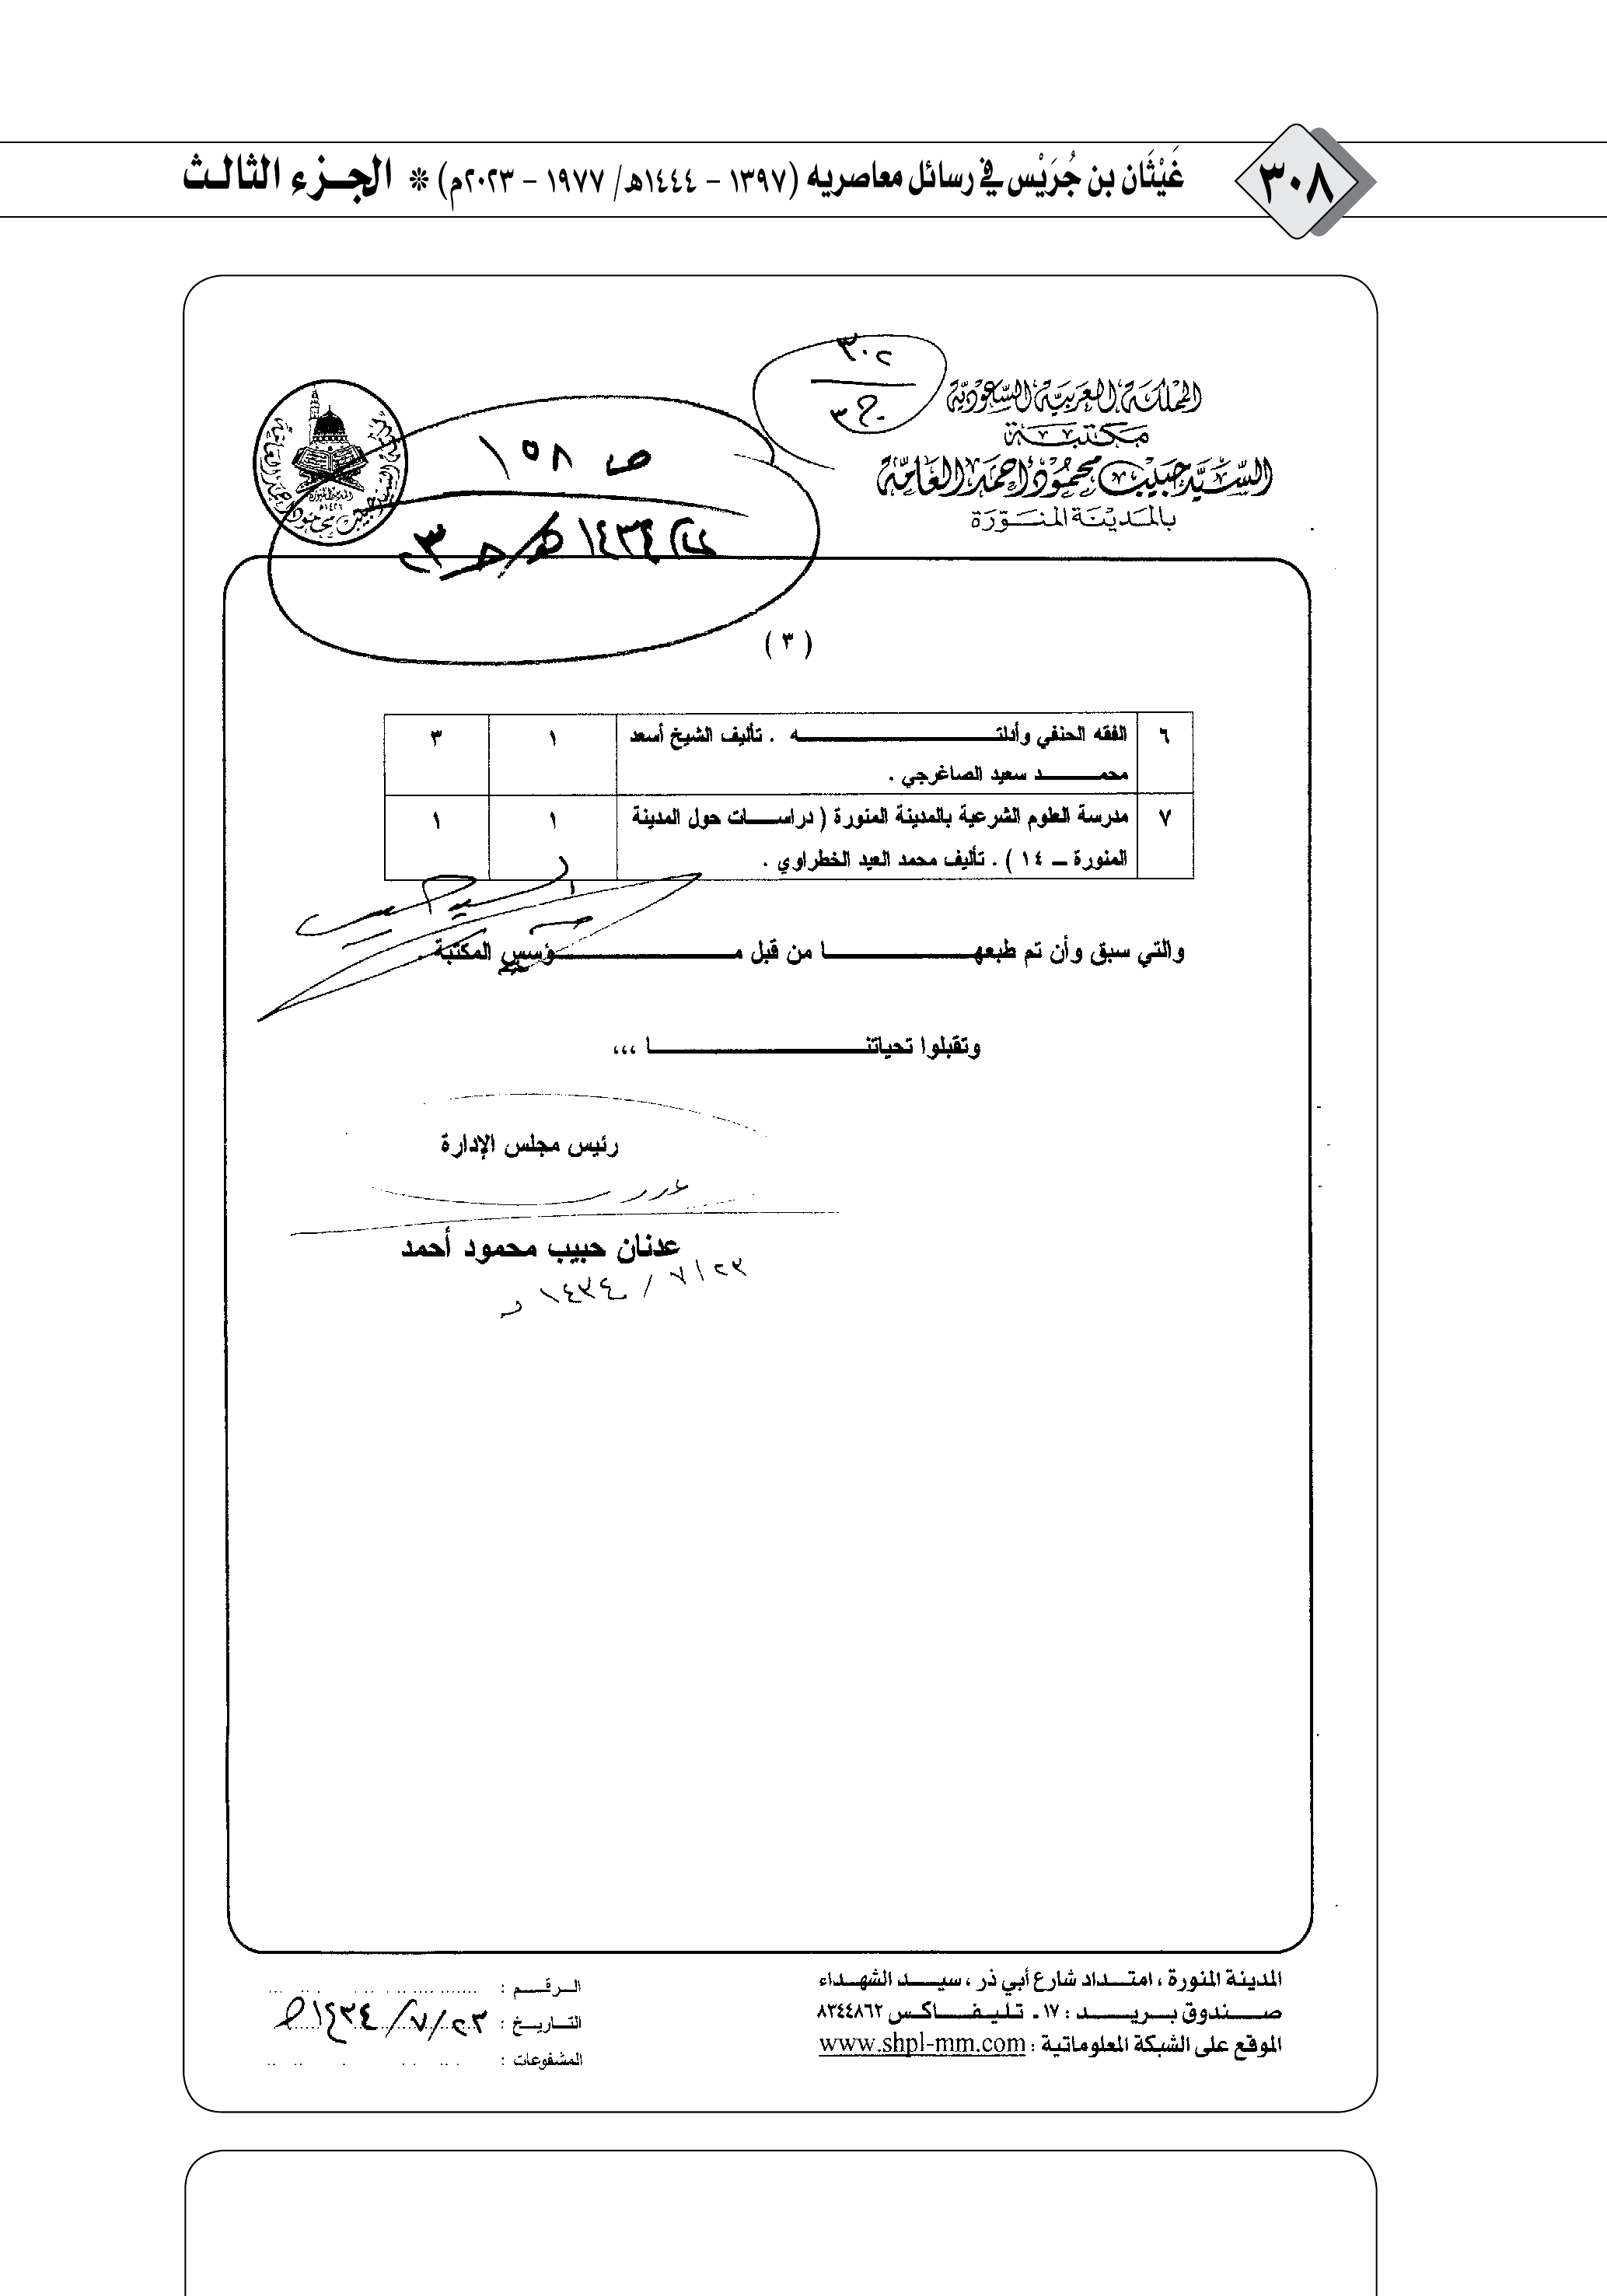 ٣٠٨
غَيْثَان بن جُرَيْس في رسائل معاصريه (١٣٩٧ - ١٤٤٤هـ/ ١٩٧٧ - ٢٠٢٣م) * الجزء الثالث
٣٠٢
ج ٣
المملكة العربية السعودية
مكتبة
السيد حبيب محمود أحمد العامة
بالمدينة المنورة
ص ١٥٨
( ٣ )
٦ الفقه الحنفي وأدلته . تأليف الشيخ أسعد ١ ٣
محمد سعيد الصاغرجي .
٧ مدرسة العلوم الشرعية بالمدينة المنورة ( دراسات حول المدينة ١ ١
المنورة – ١٤ ) . تأليف محمد العيد الخطراوي .
والتي سبق وأن تم طبعها من قبل مؤسس المكتبة .
وتقبلوا تحياتنا ،،،
رئيس مجلس الإدارة
عدنان حبيب محمود أحمد
٢٣/٧/١٤٣٤
المدينة المنورة ، امتداد شارع أبي ذر ، سيد الشهداء
صندوق بريد : ١٧ ـ تليفاكس ٨٣٤٤٨٦٢
الموقع على الشبكة المعلوماتية : www.shpl-mm.com
الرقم :
التاريخ : ٢٣/٧/١٤٣٤هـ
المشفوعات :